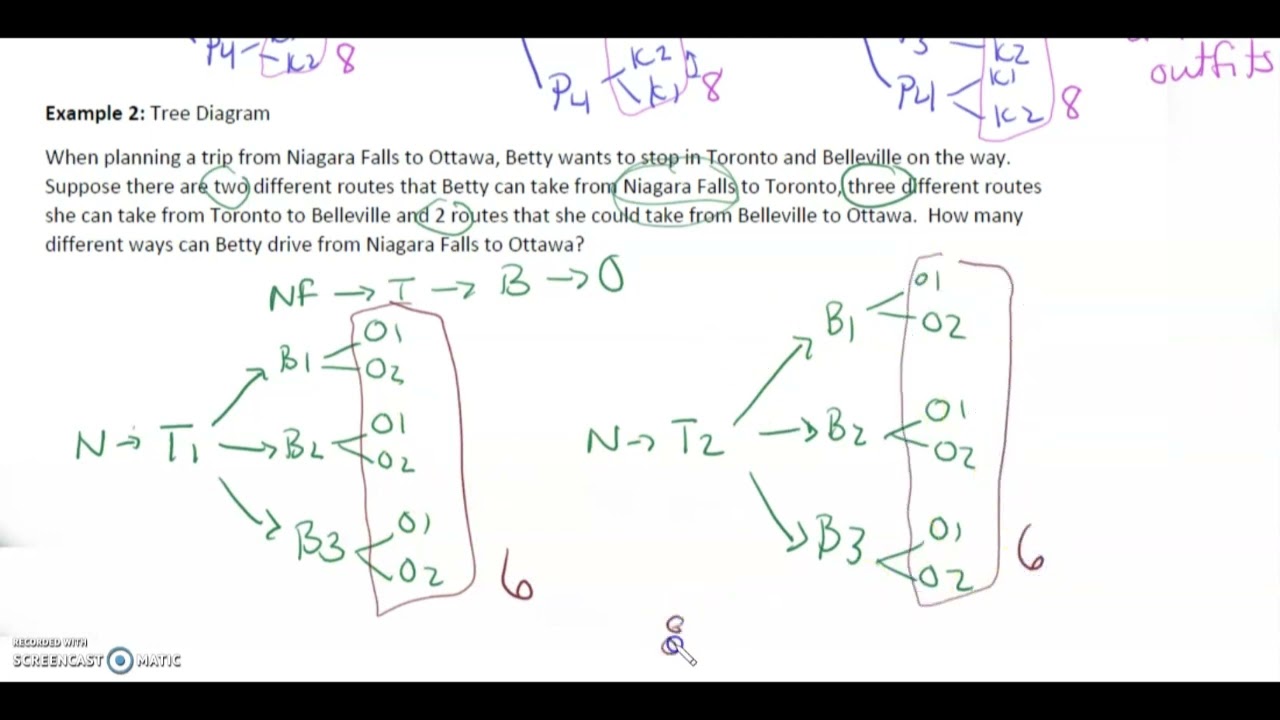 P4 K2 8
K2
P4 K1 8
K2
K1
P4 K2 8
outfits
Example 2: Tree Diagram
When planning a trip from Niagara Falls to Ottawa, Betty wants to stop in Toronto and Belleville on the way.
Suppose there are two different routes that Betty can take from Niagara Falls to Toronto, three different routes
she can take from Toronto to Belleville and 2 routes that she could take from Belleville to Ottawa. How many
different ways can Betty drive from Niagara Falls to Ottawa?
NF → T → B → O
N → T1
B1 O1
O2
B2 O1
O2
B3 O1
O2
6
N → T2
B1 O1
O2
B2 O1
O2
B3 O1
O2
6
RECORDED WITH
SCREENCAST MATIC